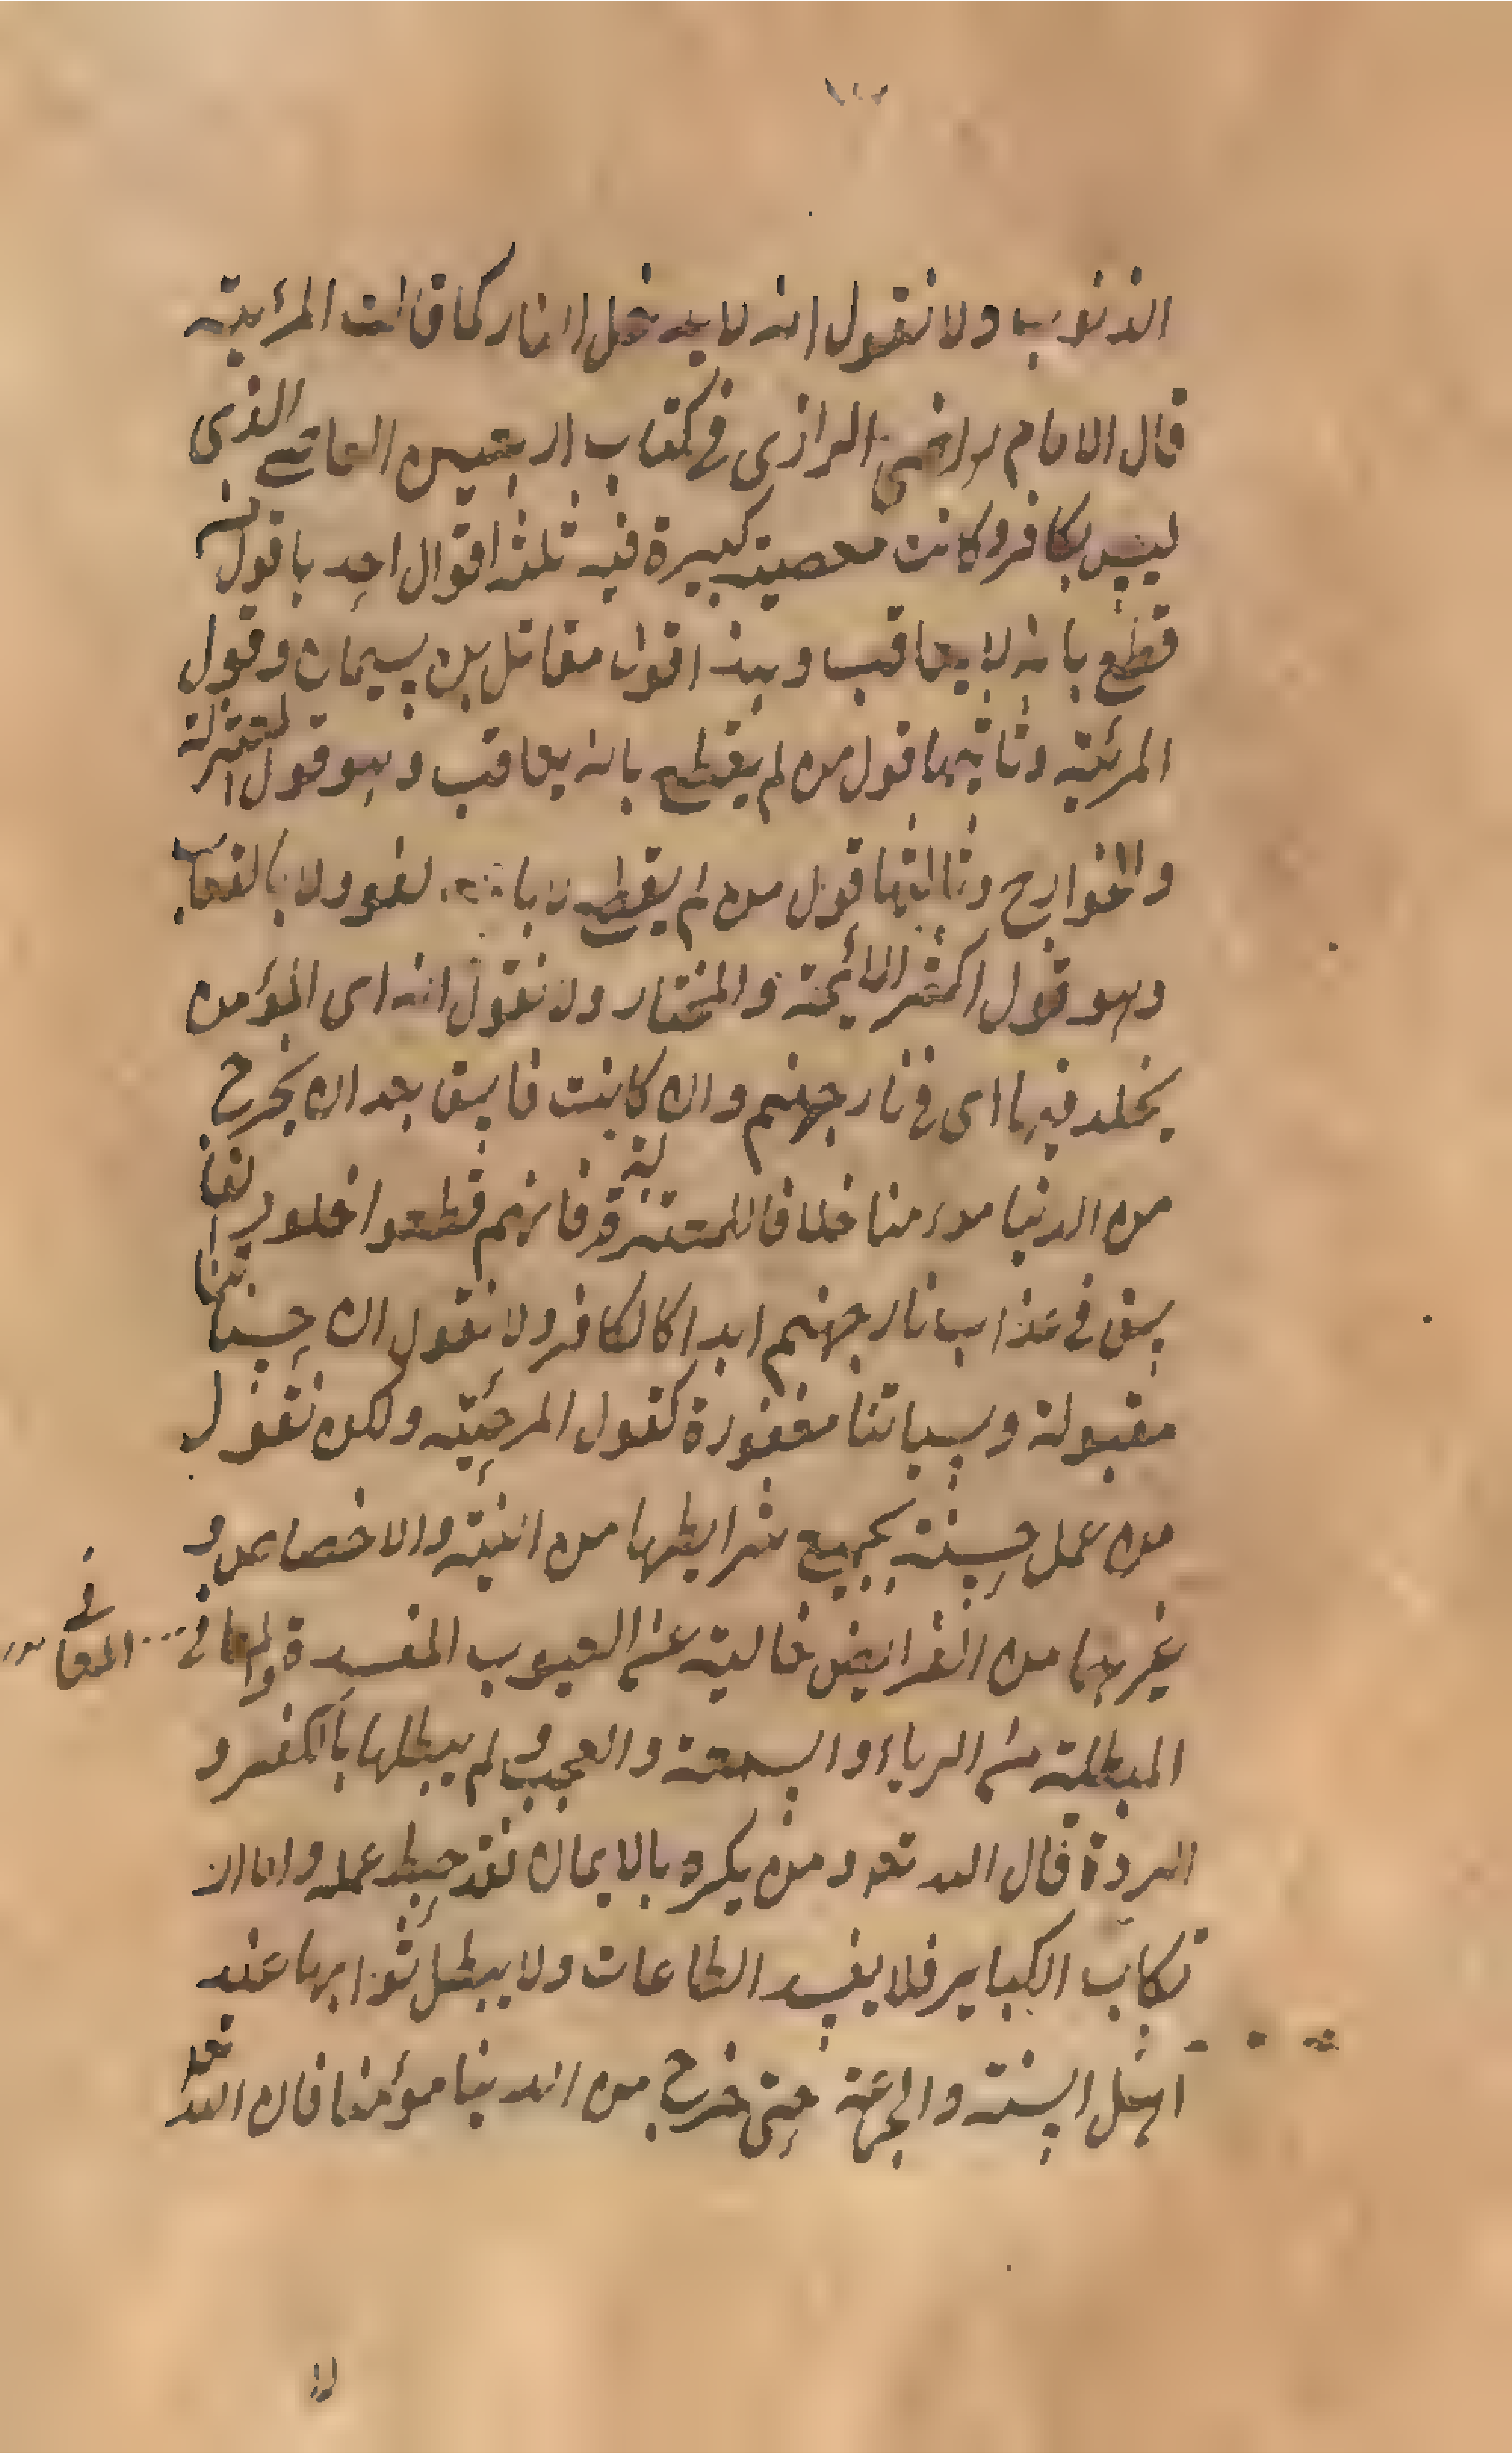 الذنوب ولا نقول انه لا يدخل النار كما قالت المرئية
قال الامام الرازى فى كتاب اربعين العاصى الذى
ليس بكافر وكانت معصيته كبيرة فيه ثلثه اقوال احد باقول من
قطع بانه لا يعاقب وهذا قول مقاتل بن سيمان وقول
المرئية وثانيها قول من لم يقطع بانه يعاقب وهو قول المعتزلة
والخوارج وثالثها قول من لم يقطع لا با لفو ولا بالعقاب
وهو قول اكثر الائمة والمختار ولا نقول انه اى المؤمن
يخلد فيها اى فى نار جهنم وان كانت فاسقا بعد ان يخرج
من الدنيا مومنا خلافا للمعتزلة فانهم قطعوا خلود الفا
سق فى عذاب نار جهنم ابدا كالكافر ولا نقول ان حسناتنا
مقبولة وسياتنا مغفورة كقول المرجئية ولكن نقول
من عمل حسنة بجميع شرايطها من النية والاخصاص و
غيرهما من الفرايض خالية عن العيوب المفسدة والمعانى
المبطلة من الرياء والسمعة والعجب ولم يبطلها بالكفر و
الردة قال الله تعو ومن يكره بالايمان فقد حبط عمله واما ار
تكاب الكباير فلا يفسد الطاعات ولا يبطل ثوابها عند
اهل السنة والجماعة حتى خرج من الدنيا مؤمنا فان الله تعو
لا